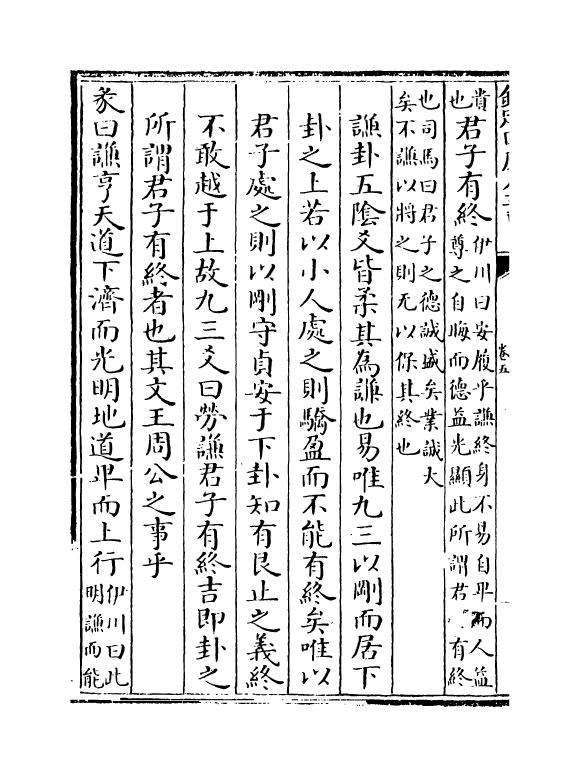 欽定四庫全書
卷五
貴也君子有終
伊川曰安履乎謙終身不易自卑而人益
尊之自晦而德益光顯此所謂君有終
也司馬曰君子之德誠盛矣業誠大
矣不謙以將之則无以保其終也
謙卦五陰爻皆柔其為謙也易唯九三以剛而居下
卦之上若以小人處之則驕盈而不能有終矣唯以
君子處之則以剛守貞安于下卦知有艮止之義終
不敢越于上故九三爻曰勞謙君子有終吉即卦之
所謂君子有終者也其文王周公之事乎
彖曰謙亨天道下濟而光明地道卑而上行
伊川曰此
明謙而能